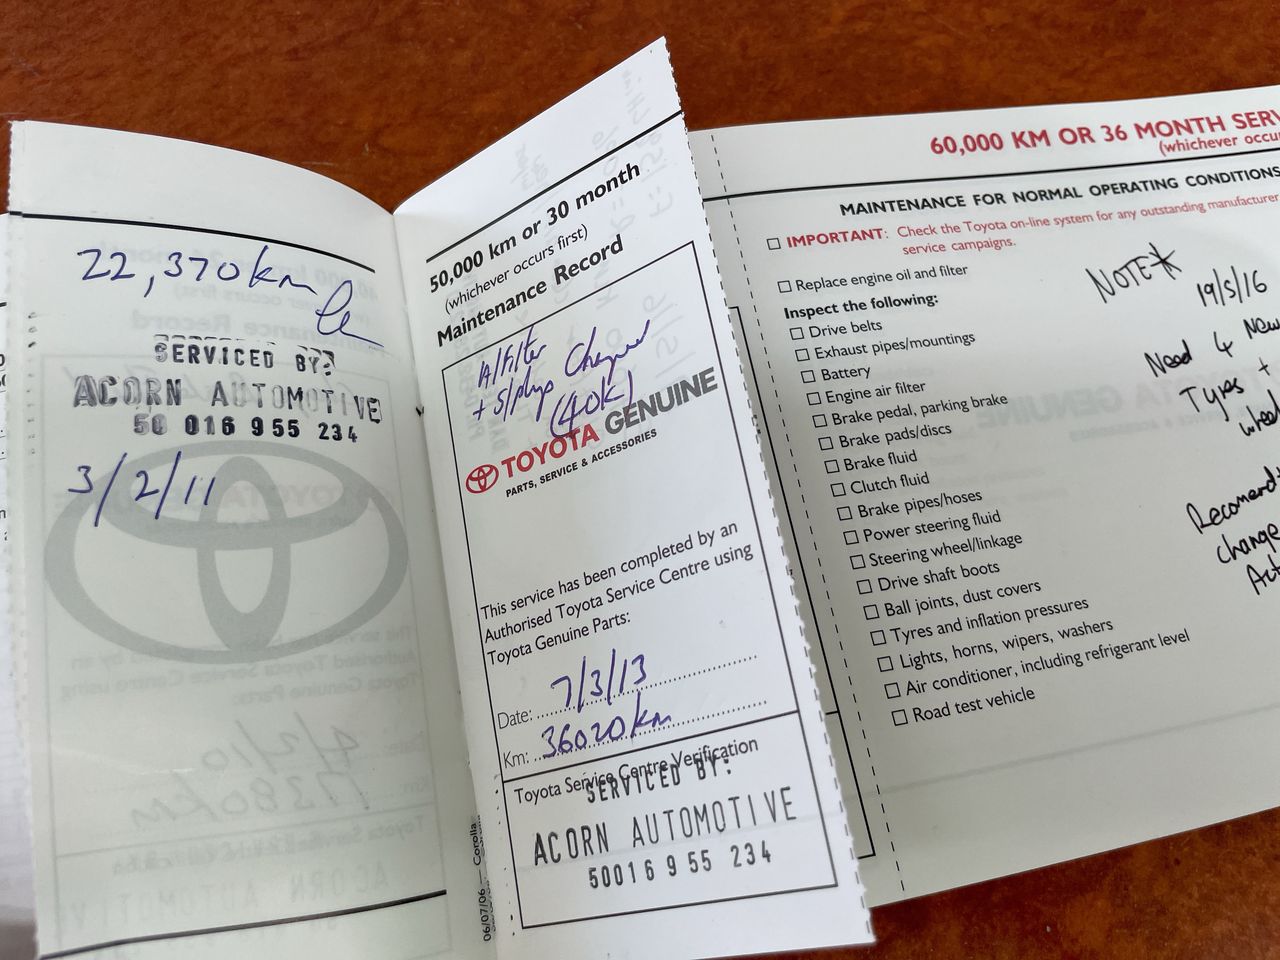 22,370km
SERVICED BY:
ACORN AUTOMOTIVE
50 016 955 234
3/2/11
50,000 km or 30 month
(whichever occurs first)
Maintenance Record
A/Filter
+ S/plugs Changed
(40k)
TOYOTA GENUINE
PARTS, SERVICE & ACCESSORIES
This service has been completed by an
Authorised Toyota Service Centre using
Toyota Genuine Parts:
Date: 7/3/13
Km: 36020km
Toyota Service Centre Verification
SERVICED BY:
ACORN AUTOMOTIVE
50016 955 234
06/07/06 — Corolla
60,000 KM OR 36 MONTH SERV
(whichever occu
MAINTENANCE FOR NORMAL OPERATING CONDITIONS
IMPORTANT: Check the Toyota on-line system for any outstanding manufacturer
service campaigns.
Replace engine oil and filter
Inspect the following:
Drive belts
Exhaust pipes/mountings
Battery
Engine air filter
Brake pedal, parking brake
Brake pads/discs
Brake fluid
Clutch fluid
Brake pipes/hoses
Power steering fluid
Steering wheel/linkage
Drive shaft boots
Ball joints, dust covers
Tyres and inflation pressures
Lights, horns, wipers, washers
Air conditioner, including refrigerant level
Road test vehicle
NOTE*
19/5/16
Need 4 New
Tyres +
wheel
Recomend
change